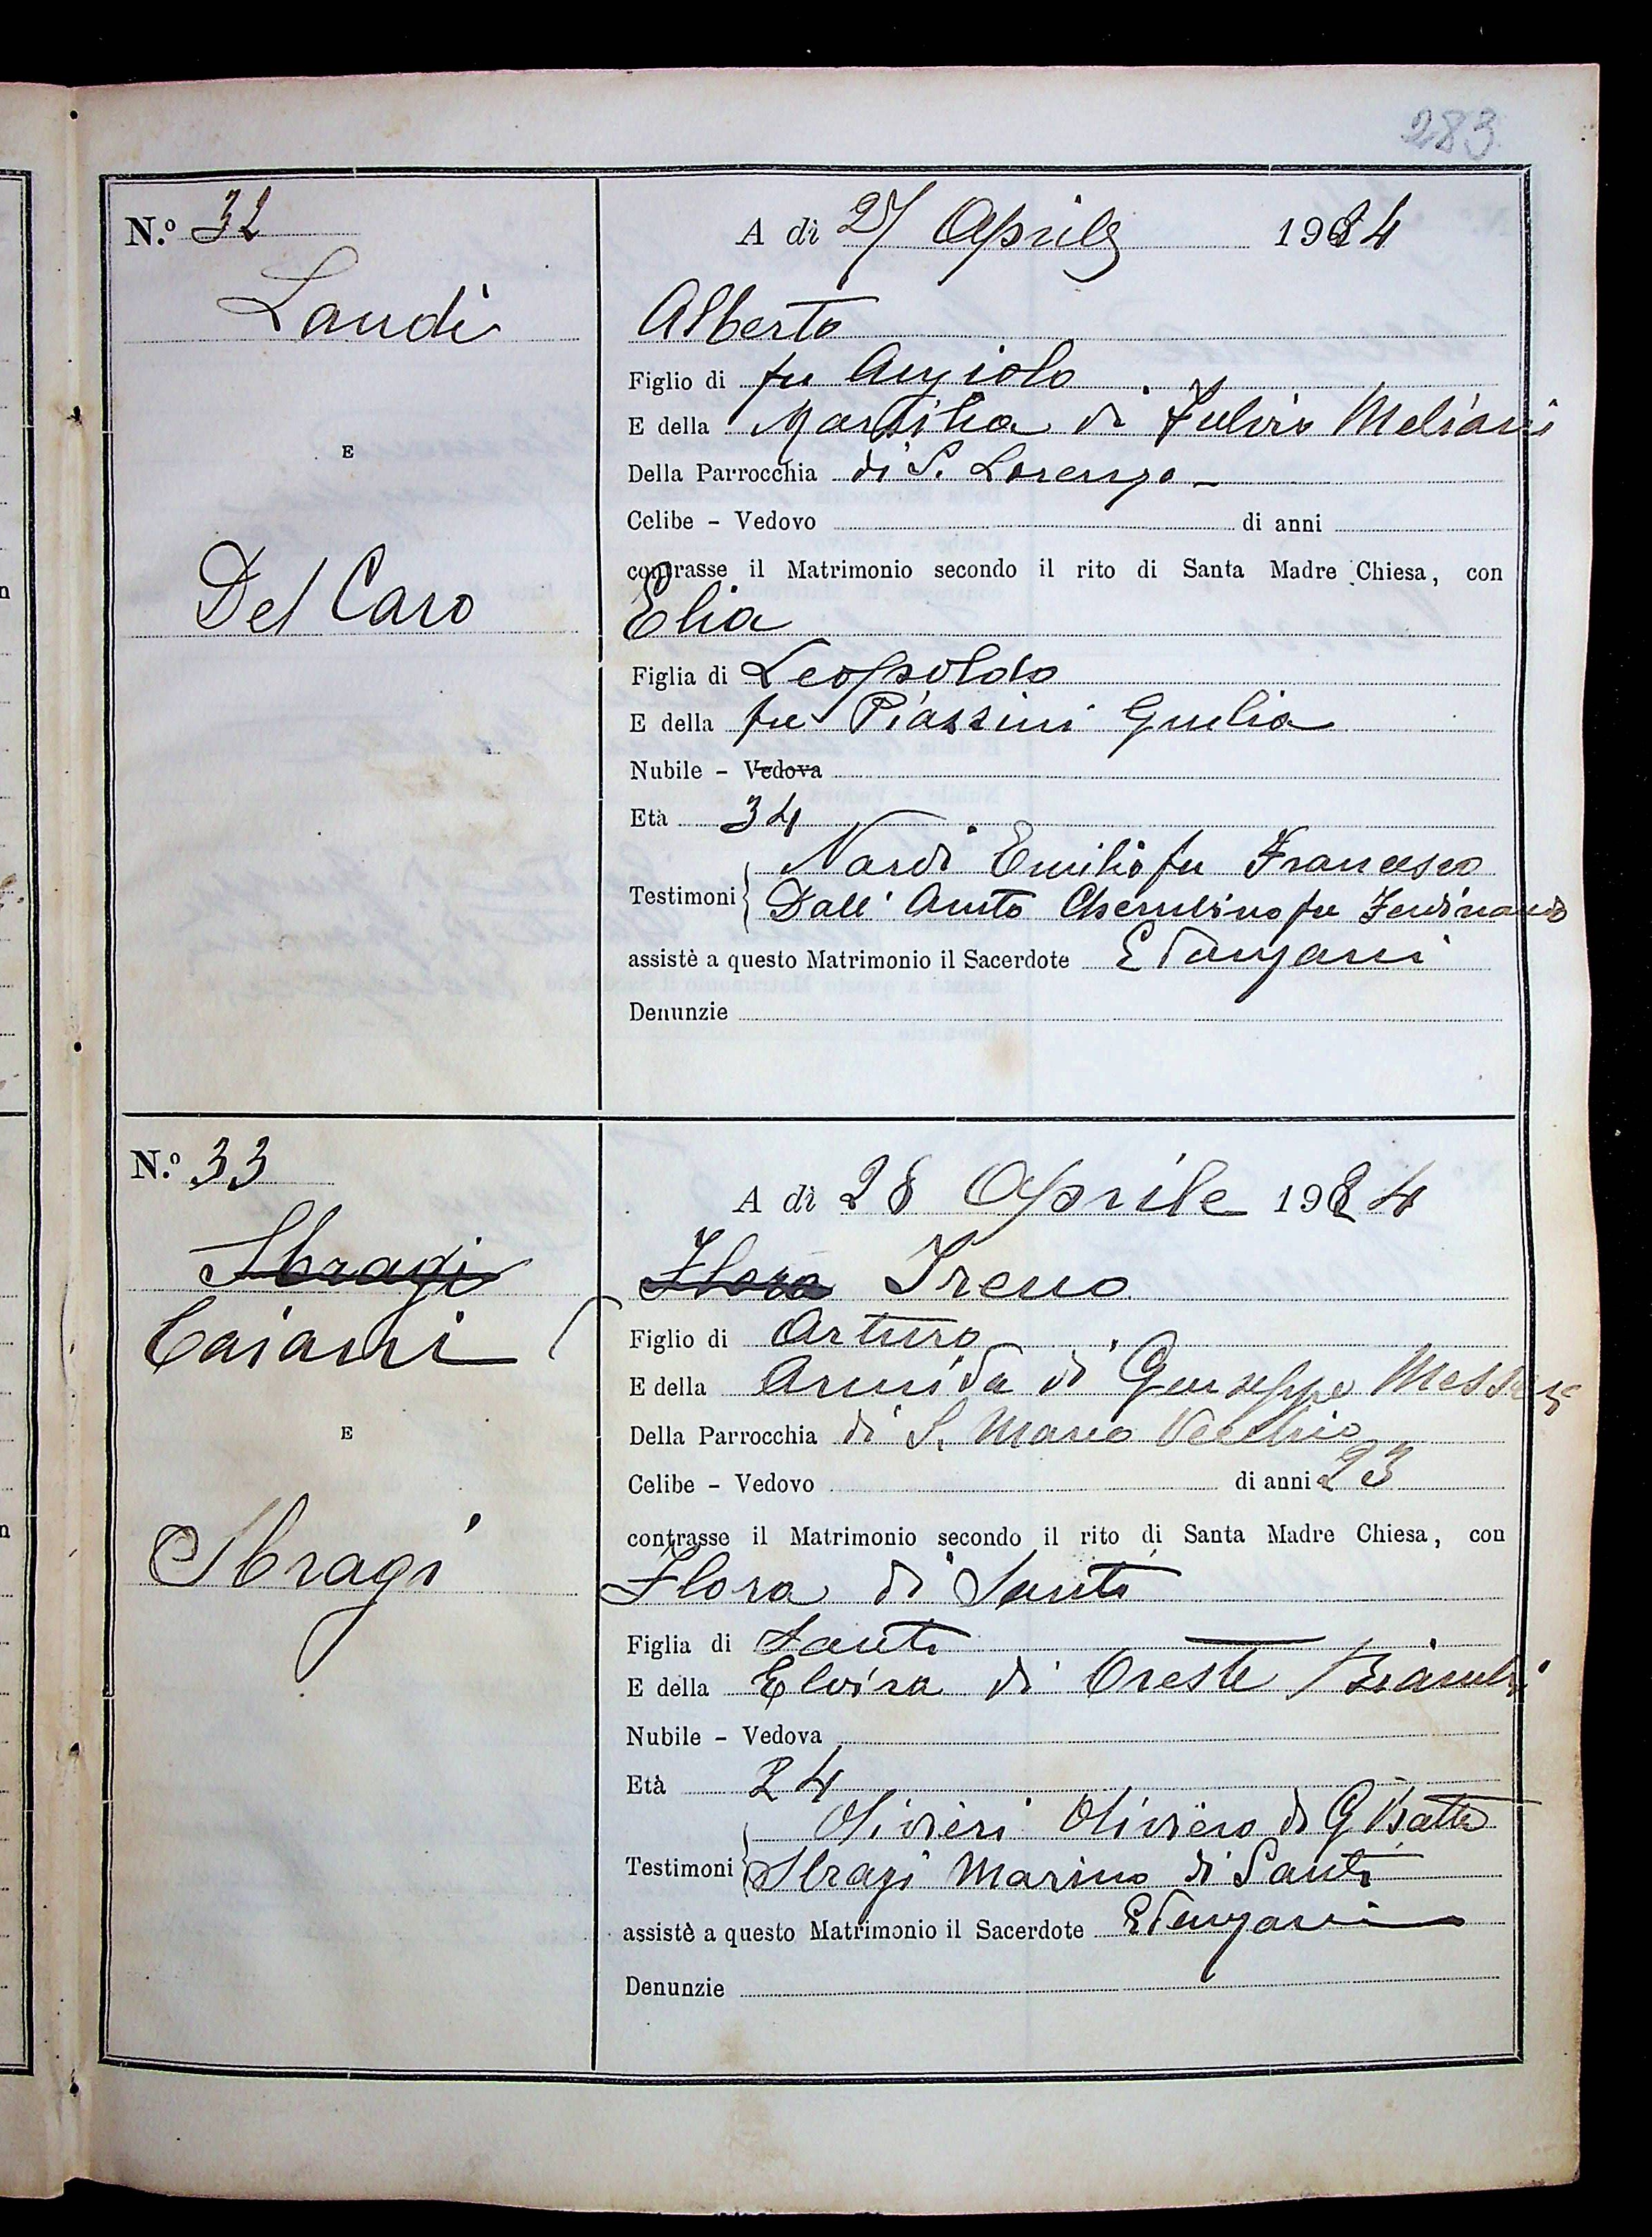 283
N.º 32
A dì 27 Aprile 1924
Landi
Alberto
Figlio di fu Angiolo
E della Marsilia di Fulvio Meliani
E
Della Parrocchia di S. Lorenzo
Celibe - Vedovo di anni
contrasse il Matrimonio secondo il rito di Santa Madre Chiesa, con
Del Caro
Elia
Figlia di Leopoldo
E della fu Piazzini Giulia
Nubile - Vedova
Età 34
Nardi Emilio fu Francesco
Testimoni Dall' Cherubino fu Ferdinando
assistè a questo Matrimonio il Sacerdote E Fangani
Denunzie
N.º 33
A dì 28 Aprile 1924
Sbragi
Flora Ireno
Caiani
Figlio di Arturo
E della Armida di Giuseppe
Della Parrocchia di S. Marco Vecchio
E
Celibe - Vedovo di anni 23
contrasse il Matrimonio secondo il rito di Santa Madre Chiesa, con
Sbragi
Flora di Santi
Figlia di Santi
E della Elvira di Oreste
Nubile - Vedova
Età 24
Olivieri Oliviero di G Batta
Testimoni Sbragi Marino di Santi
assistè a questo Matrimonio il Sacerdote E Fangani
Denunzie